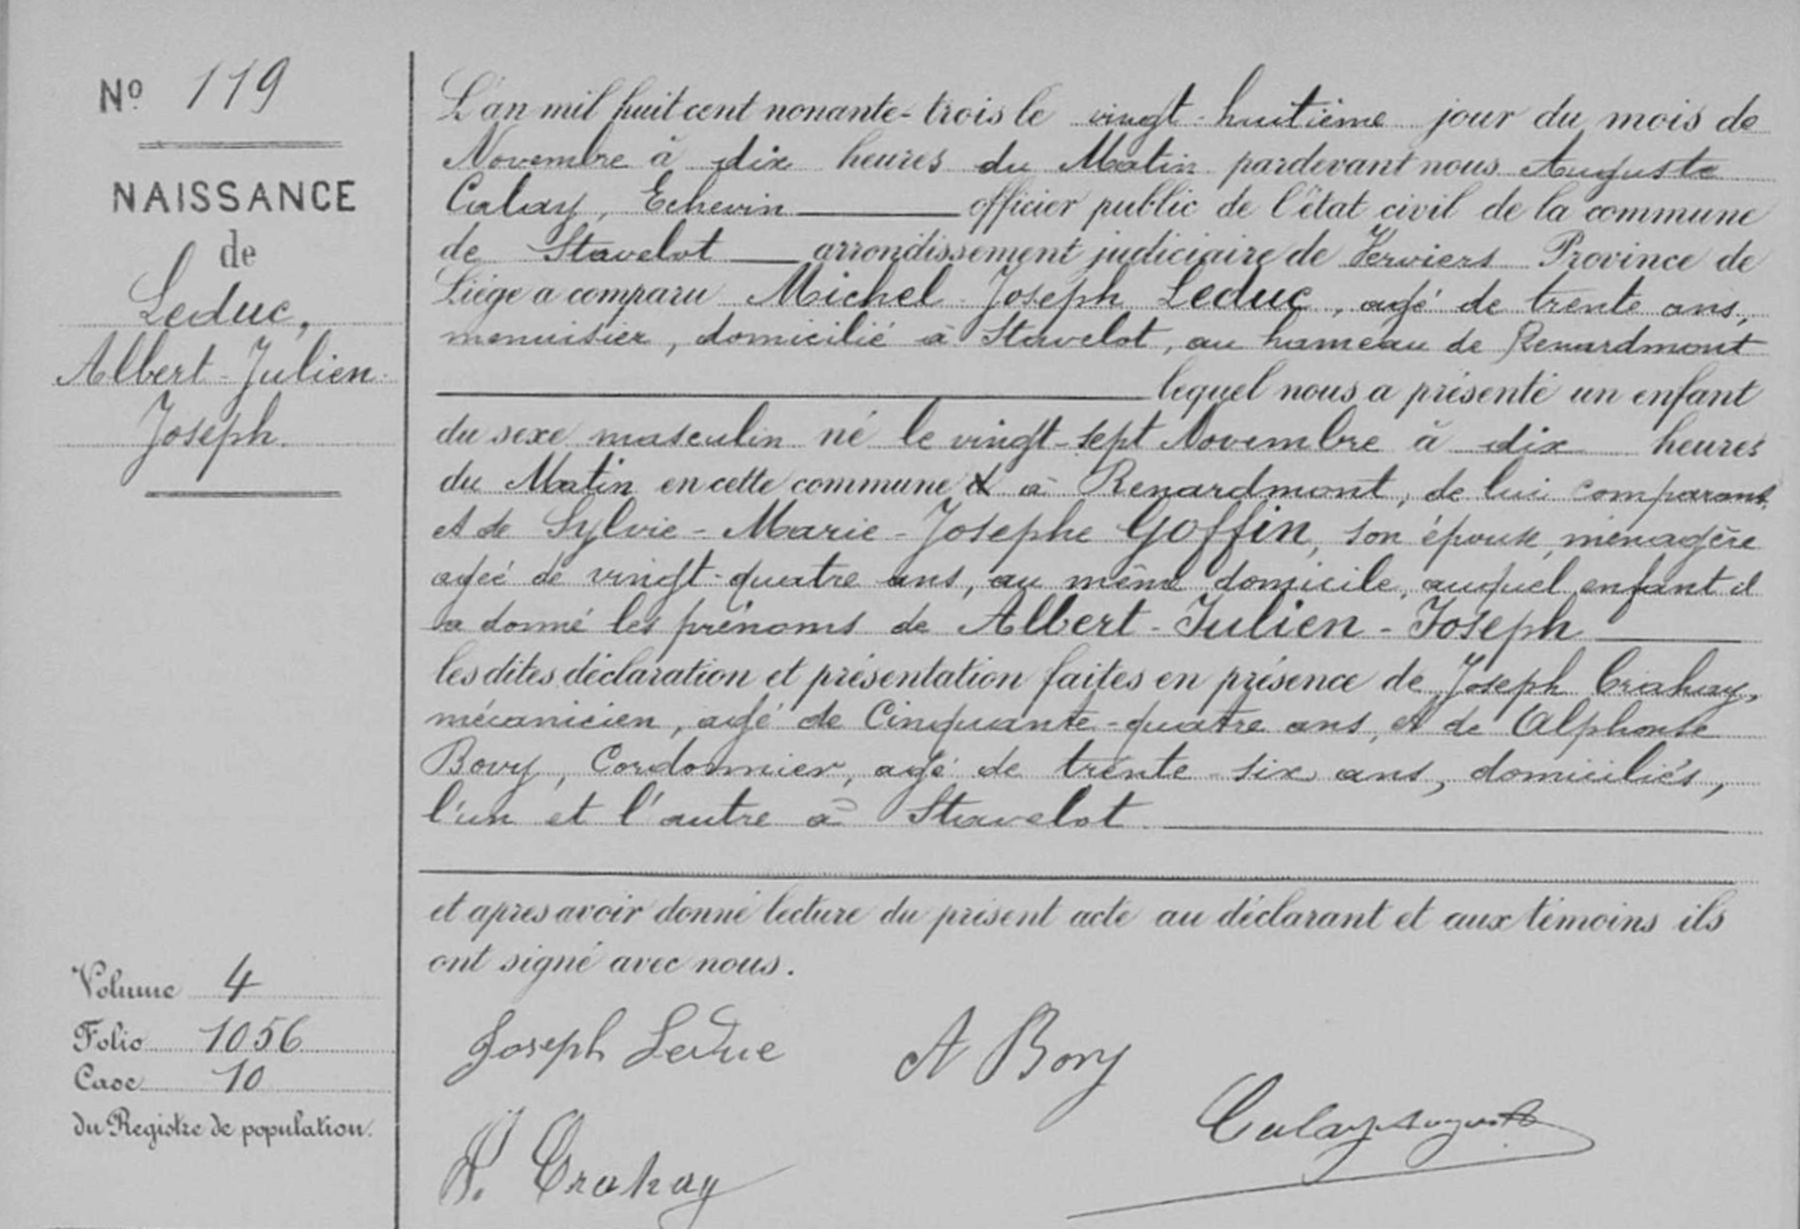 N° 119
NAISSANCE
de
Leduc,
Albert-Julien-
Joseph.
L'an mil huit cent nonante-trois le vingt-huitième jour du mois de
Novembre à dix heures du Matin pardevant nous Auguste
Calay, Echevin officier public de l'état civil de la commune
de Stavelot arrondissement judiciaire de Verviers Province de
Liège a comparu Michel-Joseph Leduc, agé de trente ans,
menuisier, domicilié à Stavelot, au hameau de Renardmont
lequel nous a présenté un enfant
du sexe masculin né le vingt-sept Novembre à dix heures
du Matin en cette commune à Renardmont, de lui comparant
et de Sylvie-Marie-Josephe Goffin, son épouse, ménagère
agée de vingt-quatre ans, au même domicile, auquel enfant il
a donné les prénoms de Albert-Julien-Joseph
les dites déclaration et présentation faites en présence de Joseph Crahay,
mécanicien, agé de Cinquante-quatre ans, et de Alphonse
Bovy, Cordonnier, agé de trente-six ans, domiciliés,
l'un et l'autre à Stavelot
et après avoir donné lecture du présent acte au déclarant et aux témoins ils
ont signé avec nous.
Volume 4
Folio 1056
Case 10
du Registre de population.
Joseph Leduc
A Bovy
Calay Auguste
J. Crahay